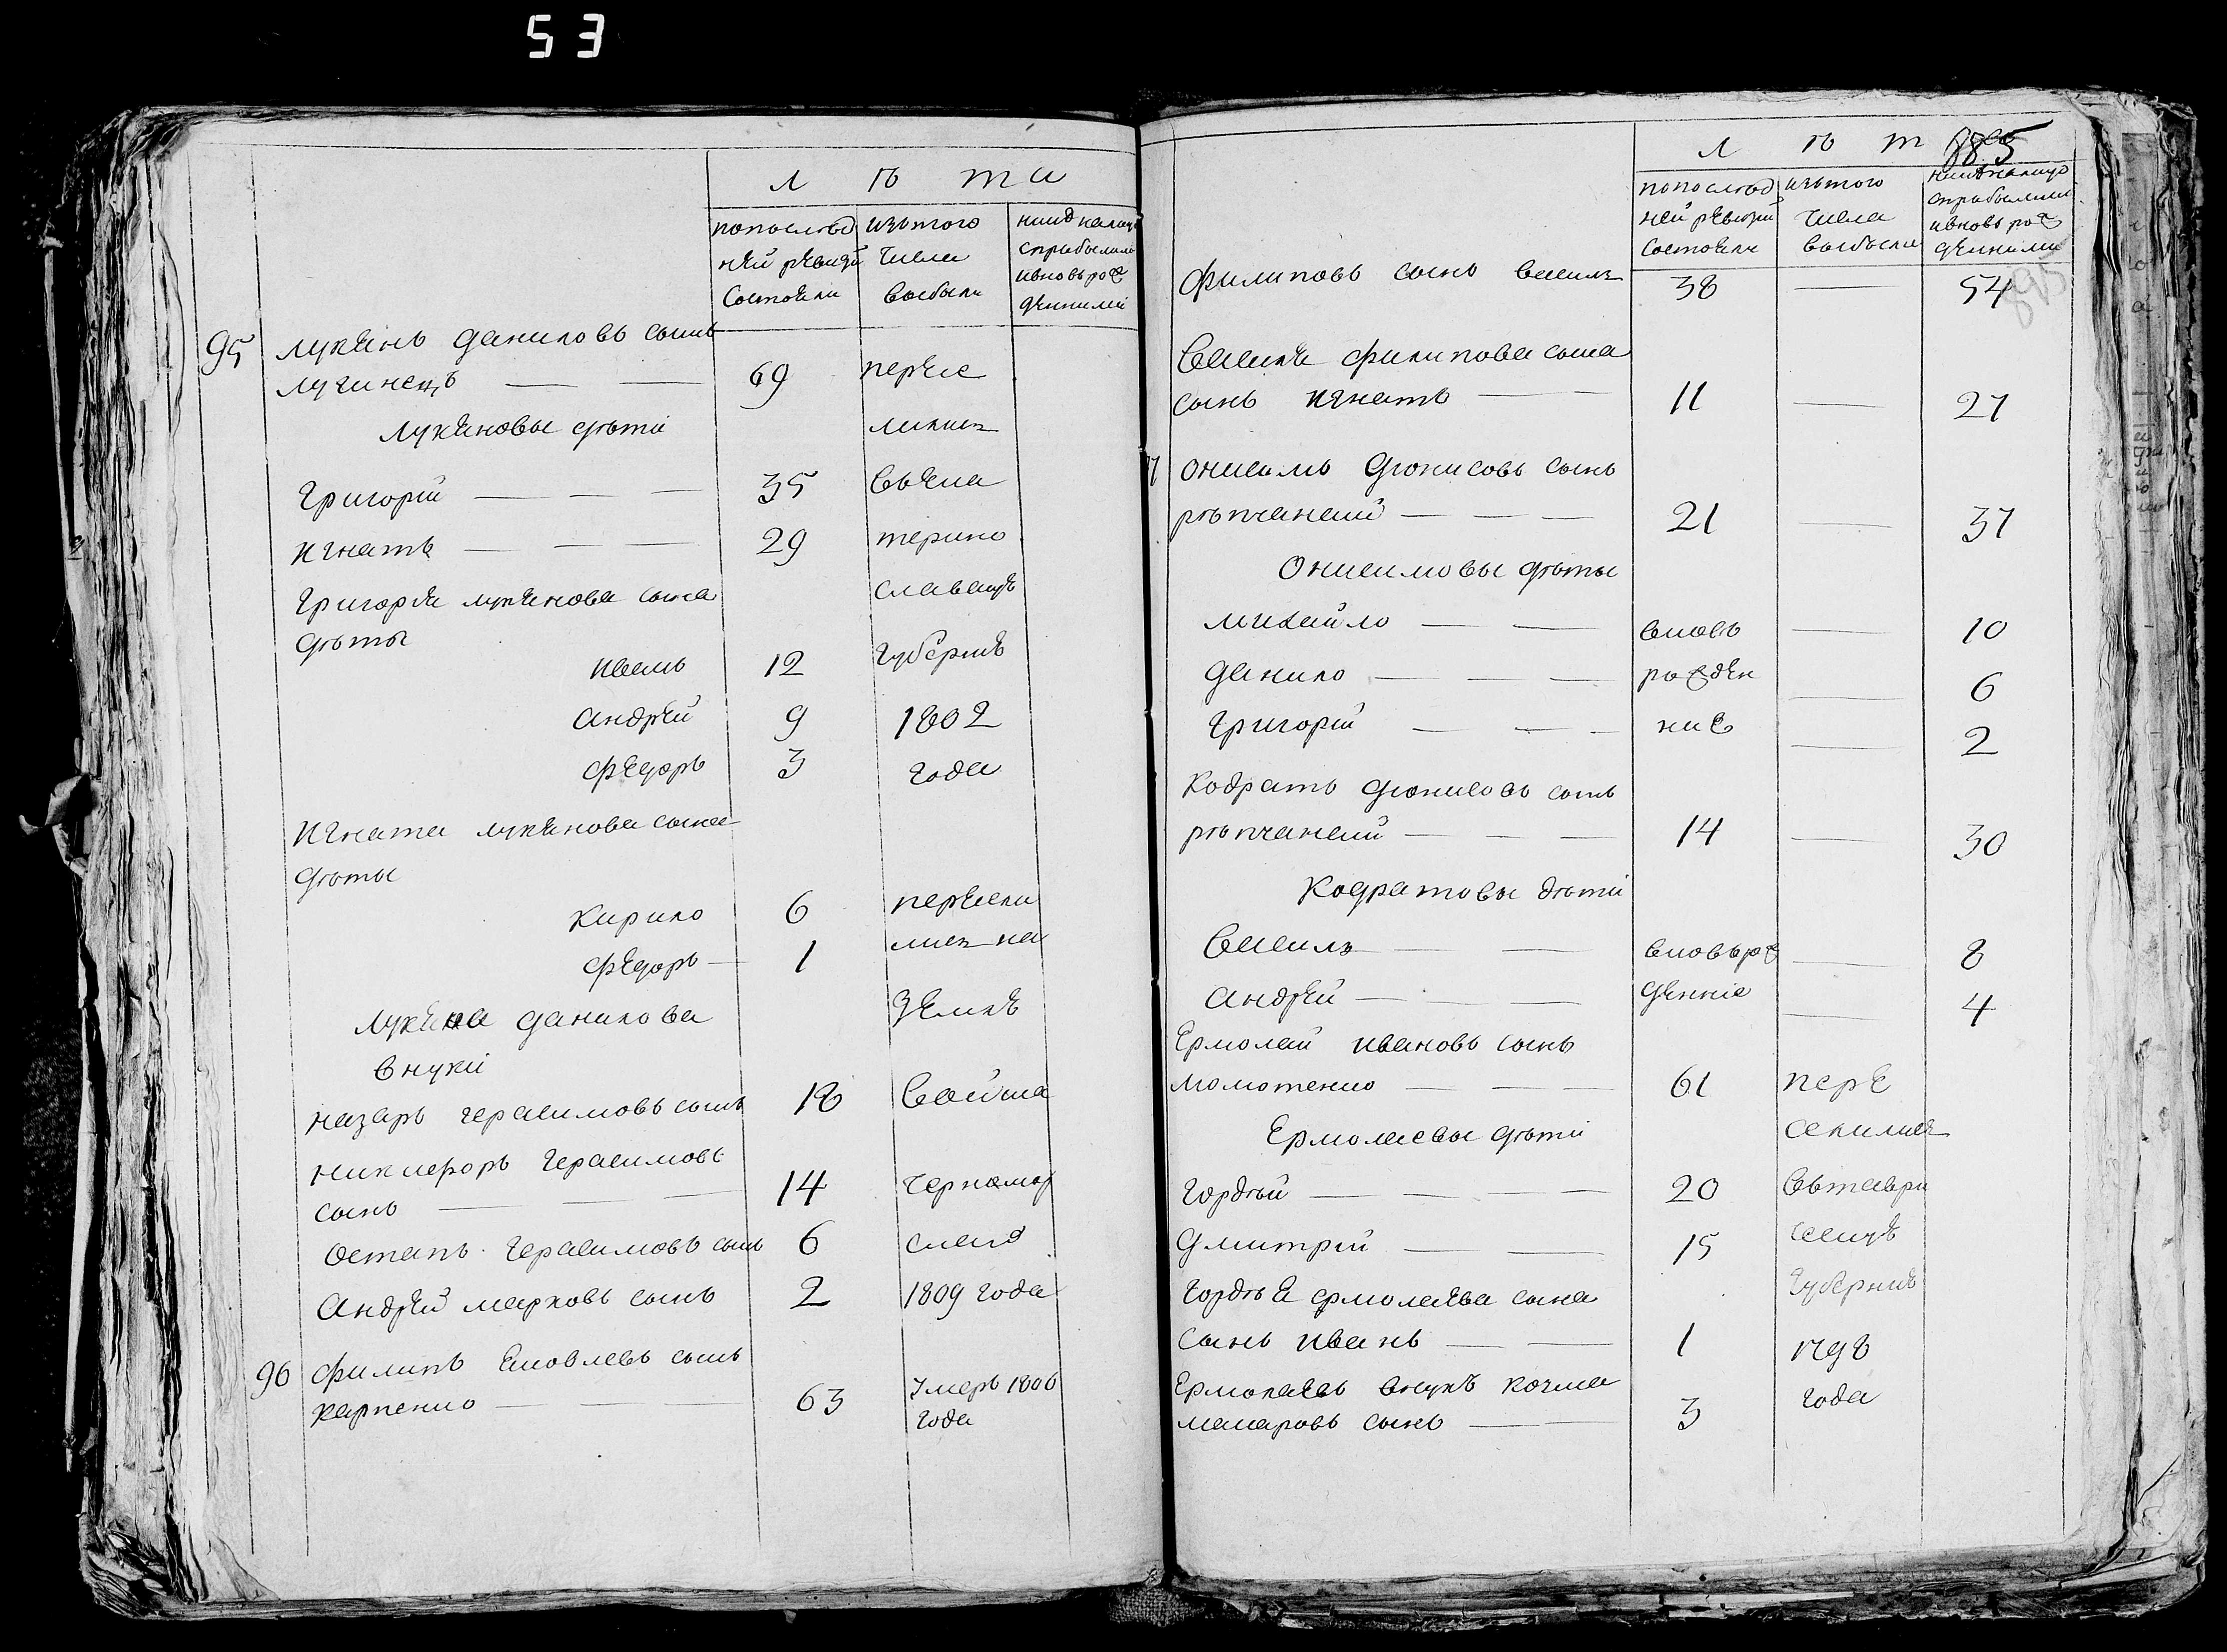 53
Л ѣ та
попослѣд нѣй рѣвизіи состояли
изътого числа выбыли
ниж налицо сприбылими ивновь рож дѣнними
95 лукянъ даниловъ сынъ
лучинецъ — — 69 перѣсе
лукяновы дѣти лились
григорій — — — 35 въека
игнатъ — — — 29 терино
григорія лукянова сына славскую
дѣты
иванъ 12 губѣрнію
андрѣй 9 1802
фѣдоръ 3 года
игната лукянова сына
дѣты
кирило 6 перѣсели
фѣдоръ — 1 лись на
лукяна данилова зѣмлѣ
внуки
назаръ герасимовъ сынъ 18 войска
никифоръ герасимовъ
сынъ — — 14 черномор
остапъ герасимовъ сынъ 6 скаго
андрѣй марковъ сынъ 2 1809 года
96 филипъ яковлевъ сынъ
карпенко — — 63 умеръ 1806
года
Л ѣ т
885
попослѣд нѣй рѣвизіи состояли
изътого числа выбыли
нинѣналицо сприбылими ивновь рож дѣнними
филиповъ сынъ василь 38 — 54
василя филипова сына
сынъ игнатъ — — 11 — 27
онисимъ дѣонисовъ сынъ
рѣпчанский — — — 21 — 37
Онисимовы дѣты
михайло — — вновь — 10
данило — — — рождѣн — 6
григорій — — — ние — 2
кодратъ дионисовъ сынъ
рѣпчанский — — — 14 — 30
кодратовы дѣти
василь — — вновьрож — 8
андрѣй — — — дѣнніе — 4
Ермолай ивановъ сынъ
момотенко — — — 61 перѣ
Ермолаевы дѣти селились
гордѣй — — — 20 вътаври
дмитрій — — 15 ческую
гордѣя ермолаева сына губѣрнию
сынъ иванъ — — 1 1798
Ермолаевъ внукъ козма года
макаровъ сынъ — — 3